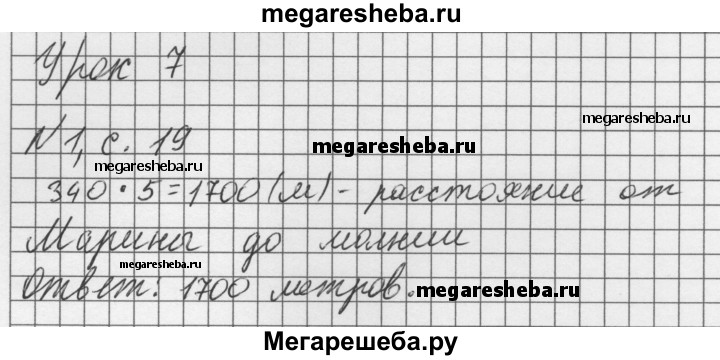 megaresheba.ru
Урок 7
megaresheba.ru
№1, с. 19
megaresheba.ru
megaresheba.ru
340 · 5 = 1700 (м) - расстояние от
Марины до молнии
megaresheba.ru
Ответ: 1700 метров.
megaresheba.ru
Мегарешеба.ру